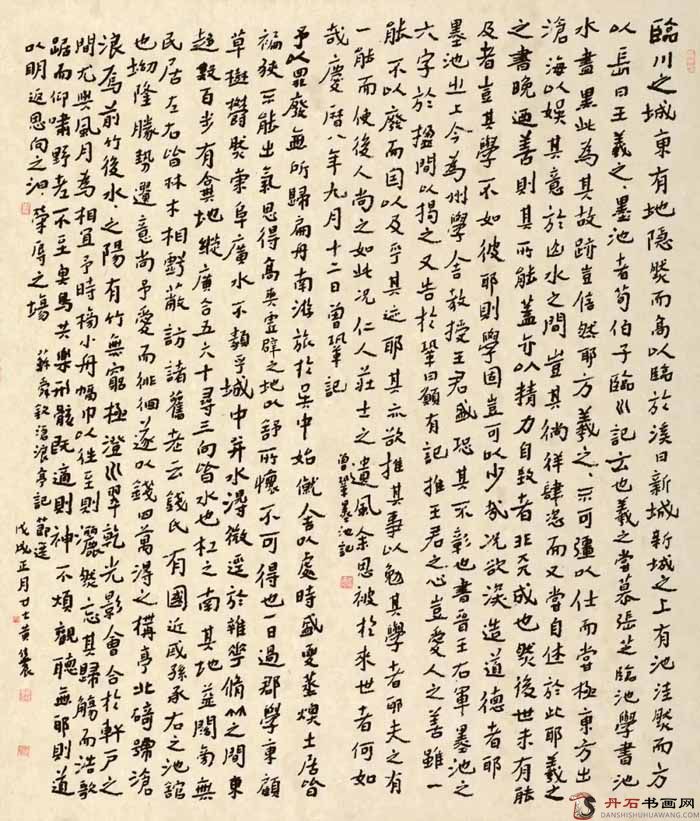 臨川之城東有地隱然而高以臨於溪曰新城新城之上有池洼然而方
以長曰王羲之之墨池者荀伯子臨川記云也羲之嘗慕張芝臨池學書池
水盡黑此為其故跡豈信然耶方羲之之不可彊以仕而嘗極東方出
滄海以娛其意於山水之間豈其徜徉肆恣而又嘗自休於此耶羲之
之書晚乃善則其所能蓋亦以精力自致者非天成也然後世未有能
及者豈其學不如彼耶則學固豈可以少哉况欲深造道德者耶
墨池之上今為州學舍教授王君盛恐其不彰也書晉王右軍墨池之
六字於楹間以揭之又告於鞏曰願有記推王君之心豈愛人之善雖一
能不以廢而因以及乎其迹耶其亦欲推其事以勉其學者耶夫之有
一能而使後人尚之如此况仁人莊士之遺風余思被於來世者何如
哉慶曆八年九月十二日曾鞏記
曾鞏墨池記
予以罪廢無所歸扁舟南游旅於吳中始僦舍以處時盛夏蒸燠土居皆
褊狹不能出氣思得高爽虛辟之地以舒所懷不可得也一日過郡學東顧
草樹鬱然崇阜廣水不類乎城中并水得微逕於雜花脩竹之間東
趨數百步有棄地縱廣合五六十尋三向皆水也杠之南其地益闊旁無
民居左右皆林木相虧蔽訪諸舊老云錢氏有國近戚孫承右之池館
也坳隆勝勢遺意尚予愛而徘徊遂以錢四萬得之構亭北碕號滄
浪焉前竹後水之陽有竹無窮極澄川翠乾光影會合於軒戶之
間尤與風月為相宜予時榜小舟幅巾以往至則灑然忘其歸觴而浩歌
踞而仰嘯野老不至魚鳥共樂形骸既適則神不煩觀聽無邪則道
以明返思向之汩榮辱之場
蘇舜欽滄浪亭記節選
戊戌正月廿
丹石书画网
DANSHISHUHUAWANG.COM